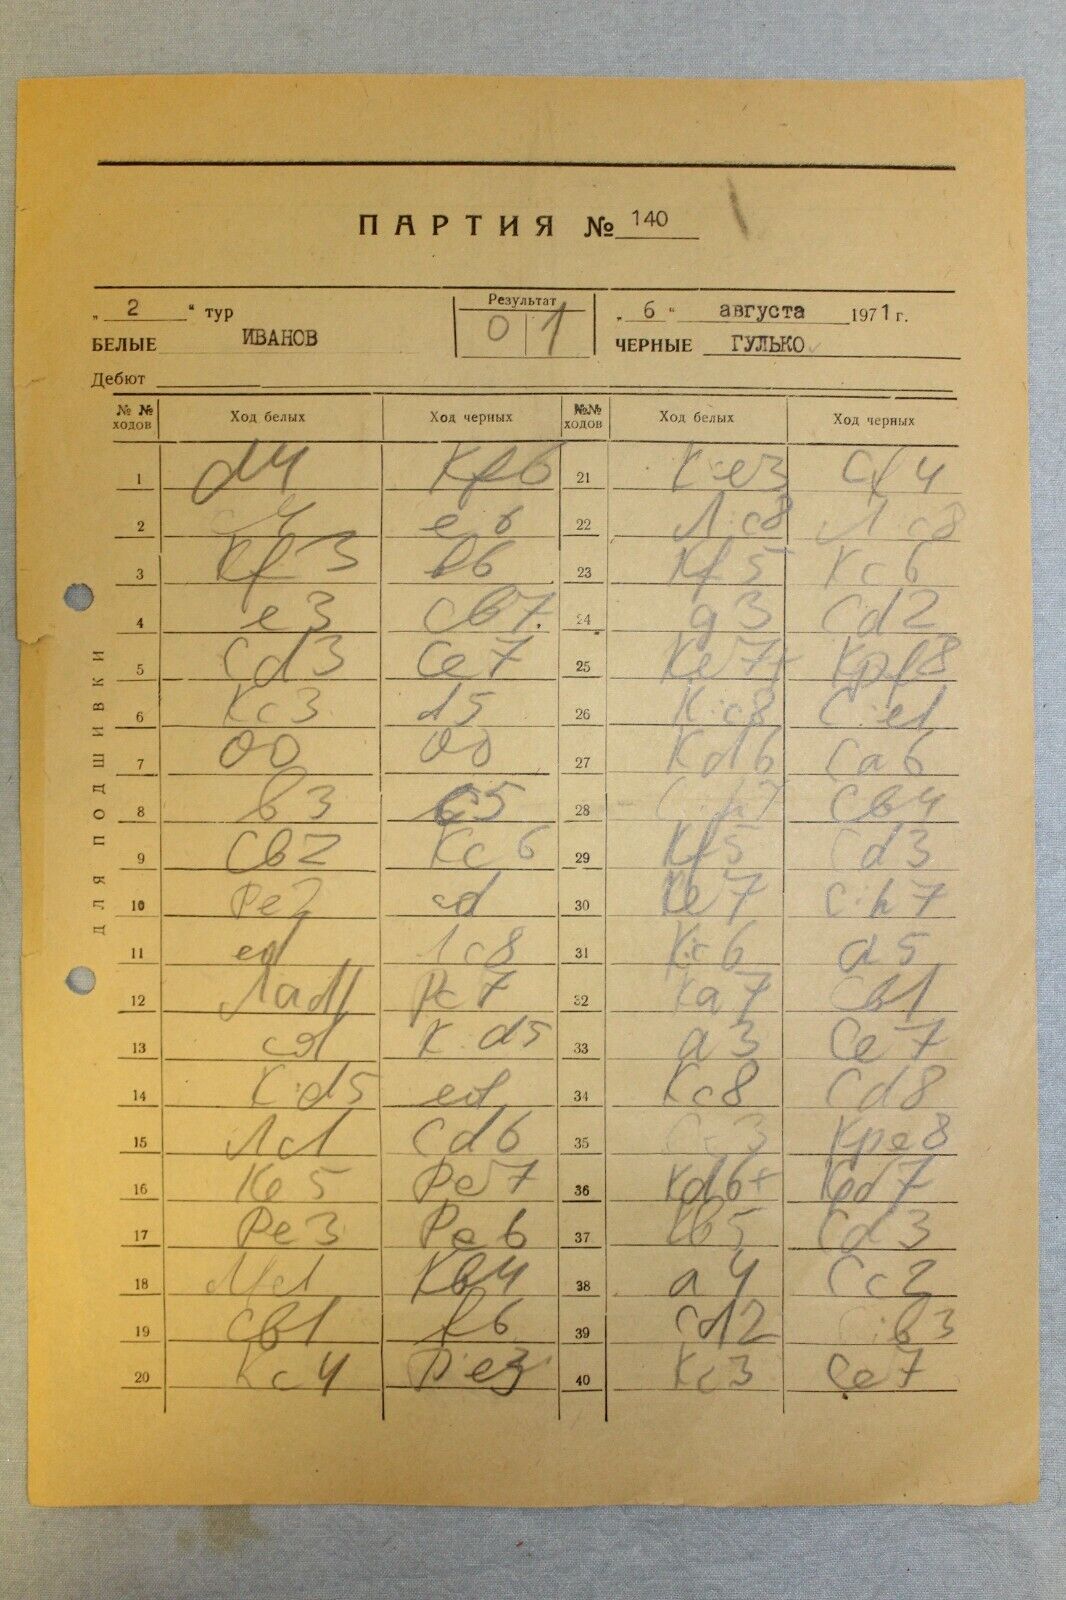 ПАРТИЯ № 140
„ 2 “ тур
Результат
0 1
„ 6 “ августа 1971 г.
БЕЛЫЕ ИВАНОВ
ЧЕРНЫЕ ГУЛЬКО
Дебют
№ № ходов Ход белых Ход черных №№ ходов Ход белых Ход черных
1 d4 Кf6 21 К:e3 Cf4
2 c4 e6 22 Л:c8 Л:c8
3 Кf3 b6 23 Кf5 Кc6
4 e3 Cb7. 24 g3 Cd2
5 Cd3 Ce7 25 Кe7+ Крf8
6 Кc3 d5 26 К:c8 C:e1
7 00 00 27 Кd6 Ca6
8 b3 c5 28 C:h7 Cb4
9 Cb2 Кc6 29 Кf5 Cd3
10 Фe2 cd 30 Кe7 C:h7
11 ed Лc8 31 К:c6 a5
12 Лad1 Фc7 32 Кa7 Cb1
13 cd К:d5 33 a3 Ce7
14 К:d5 ed 34 Кc8 Cd8
15 Лc1 Cd6 35 Cc3 Крe8
16 Кe5 Фe7 36 Кd6+ Крd7
17 Фe3 Фe6 37 Кb5 Cd3
18 Кb4 38 a4 Cc2
19 Cb1 f6 39 Cd2 C:b3
20 Кc4 Ф:e3 40 Кc3 Ce7
ДЛЯ ПОДШИВКИ